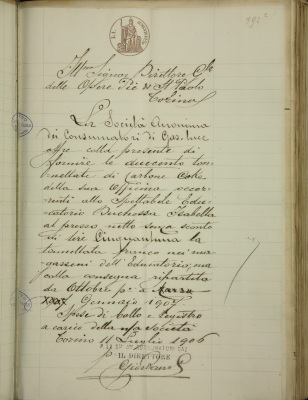 392
Ill.mo Signor Direttore G.le
delle Opere Pie di S. Paolo
Torino
La Società Anonima
dei Consumatori di Gas-luce
offre colla presente di
fornire le duecento ton-
nellate di Carbone Coke
della sua Officina occor-
renti allo Spettabile Edu-
catorio Duchessa Isabella
al prezzo netto senza sconto
di lire Cinquantuna la
tonnellata franco nei ma-
gazzeni dell'Educatorio, ma
colla consegna ripartita
da Ottobre p.o a Marzo
Gennajo 1907
Spese di bollo e registro
a carico della n/a Società
Torino 11 Luglio 1906
IL DIRETTORE